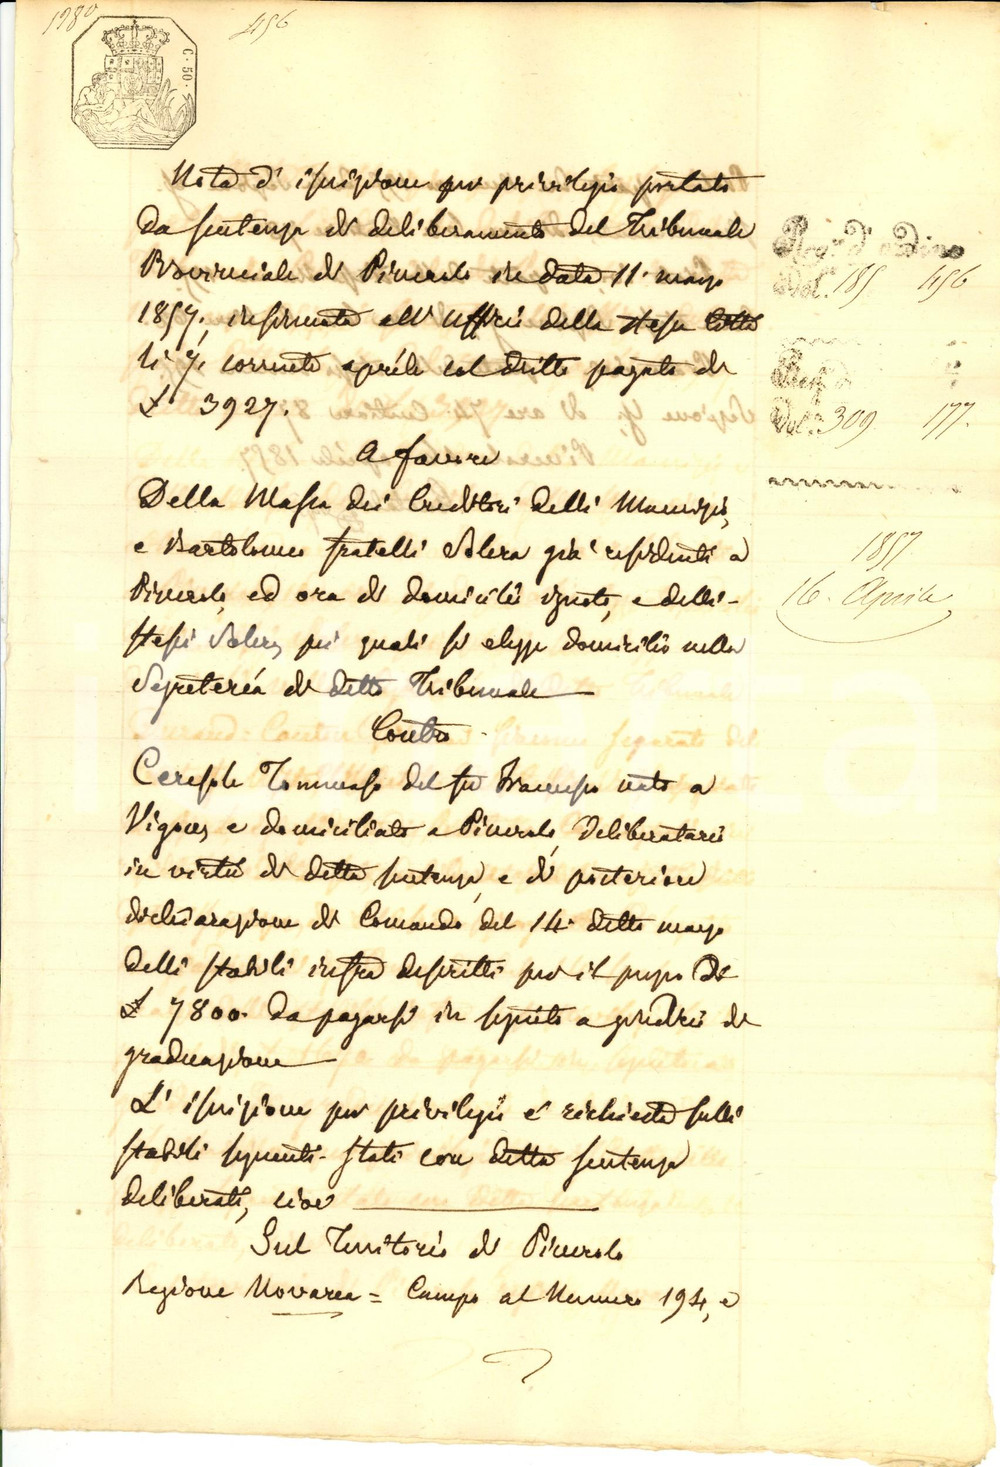 1980
456
C. 50.
Nota d'iscrizione per privilegio portato
da sentenza di deliberamento del Tribunale
Provinciale di Pinerolo in data 11. marzo
1857, insinuata all'Uffizio della stessa Città
li 7. corrente aprile col dritto pagato di
£ 3927.
A favore
Della Massa dei Creditori delli Maurizio,
e Bartolomeo fratelli Solera già residenti a
Pinerolo, ed ora di domicilio ignoto, e delli
stessi Solera, pei quali si elegge domicilio nella
Segreteria di detto Tribunale
Contro
Ceresole Tommaso del fu Francesco nato a
Vigone, e domiciliato a Pinerolo, deliberatario
in virtù di detta sentenza, e di posteriore
dichiarazione di Comando del 14. detto marzo
delli stabili infra descritti per il prezzo di
£ 7800. da pagarsi in seguito a giudizio di
graduazione
L'iscrizione per privilegio è richiesta sulli
stabili seguenti stati con detta sentenza
deliberati, cioè
Sul Territorio di Pinerolo
Regione Novarea = Campo al Numero 194, e
Reg.° d'ordine
Vol. 185 456
Vol. 309. 177.
1857
16. Aprile